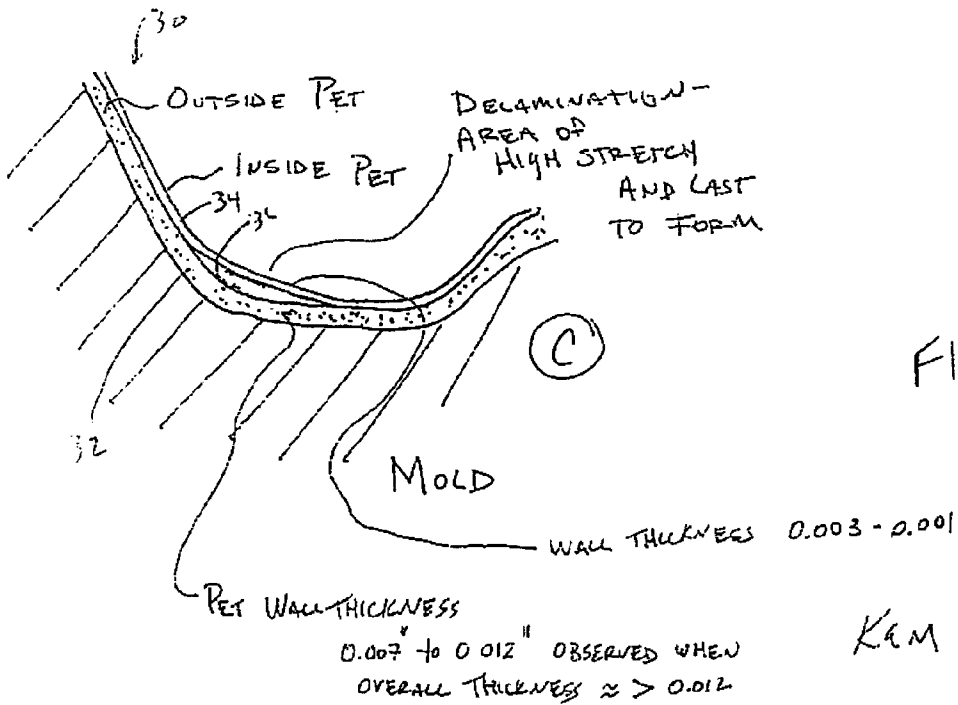 30
OUTSIDE PET
DELAMINATION-
AREA OF
HIGH STRETCH
AND LAST
TO FORM
INSIDE PET
34
36
C
FI
32
MOLD
WALL THICKNESS 0.003 - 0.001
PET WALL THICKNESS
0.007" to 0.012" OBSERVED WHEN
OVERALL THICKNESS ≈ > 0.012